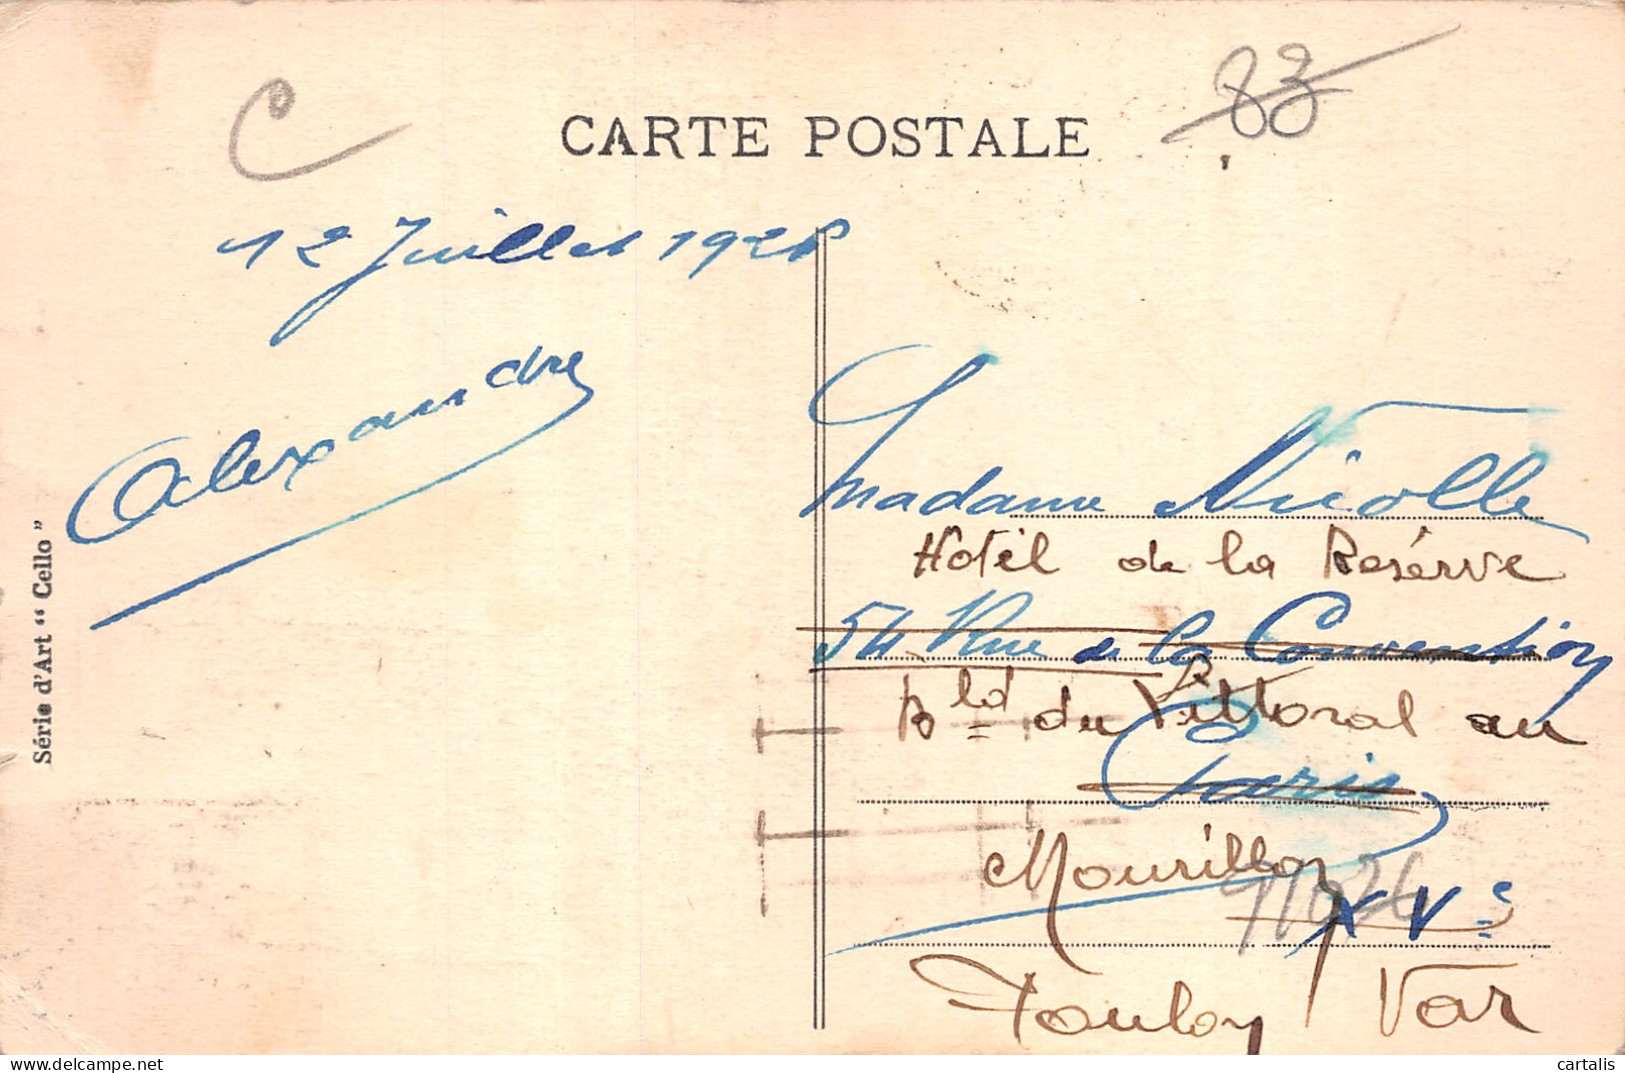 C
83
CARTE POSTALE
12 Juillet 1928
Alexandre
Série d'Art "Cello"
Madame Nicolle
Hotêl de la Resérve
54 Rue de la Convention
Bld du Littoral au
Paris
Mourillon
XVe
Toulon Var
cartalis